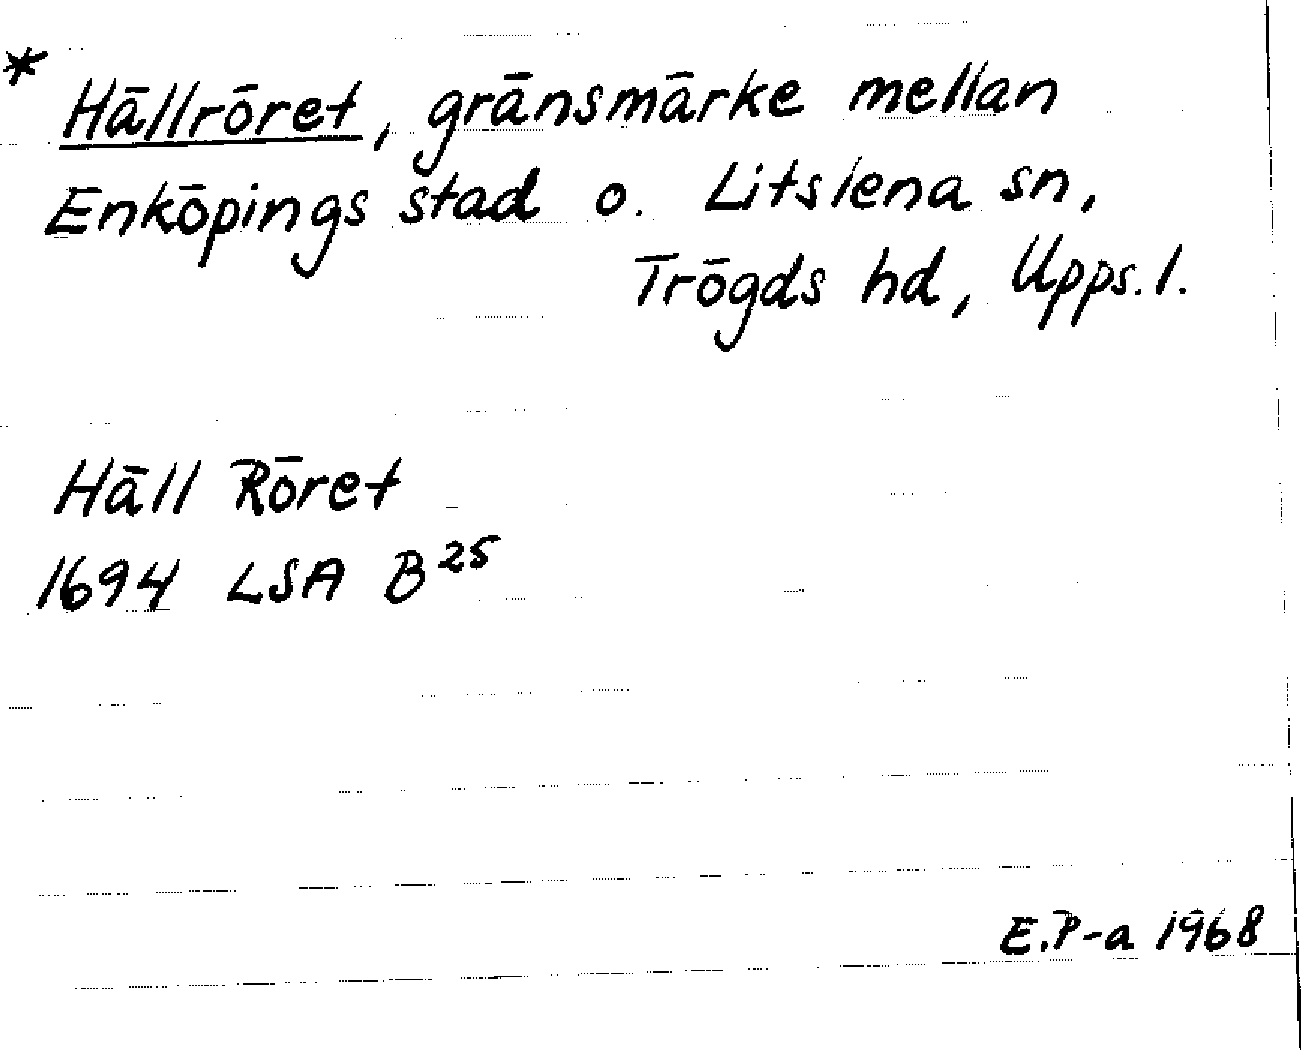 * Hällröret, gränsmärke mellan
Enköpings stad o. Litslena sn,
Trögds hd, Upps. l.
Häll Röret
1694 LSA B²⁵
E.P-a 1968